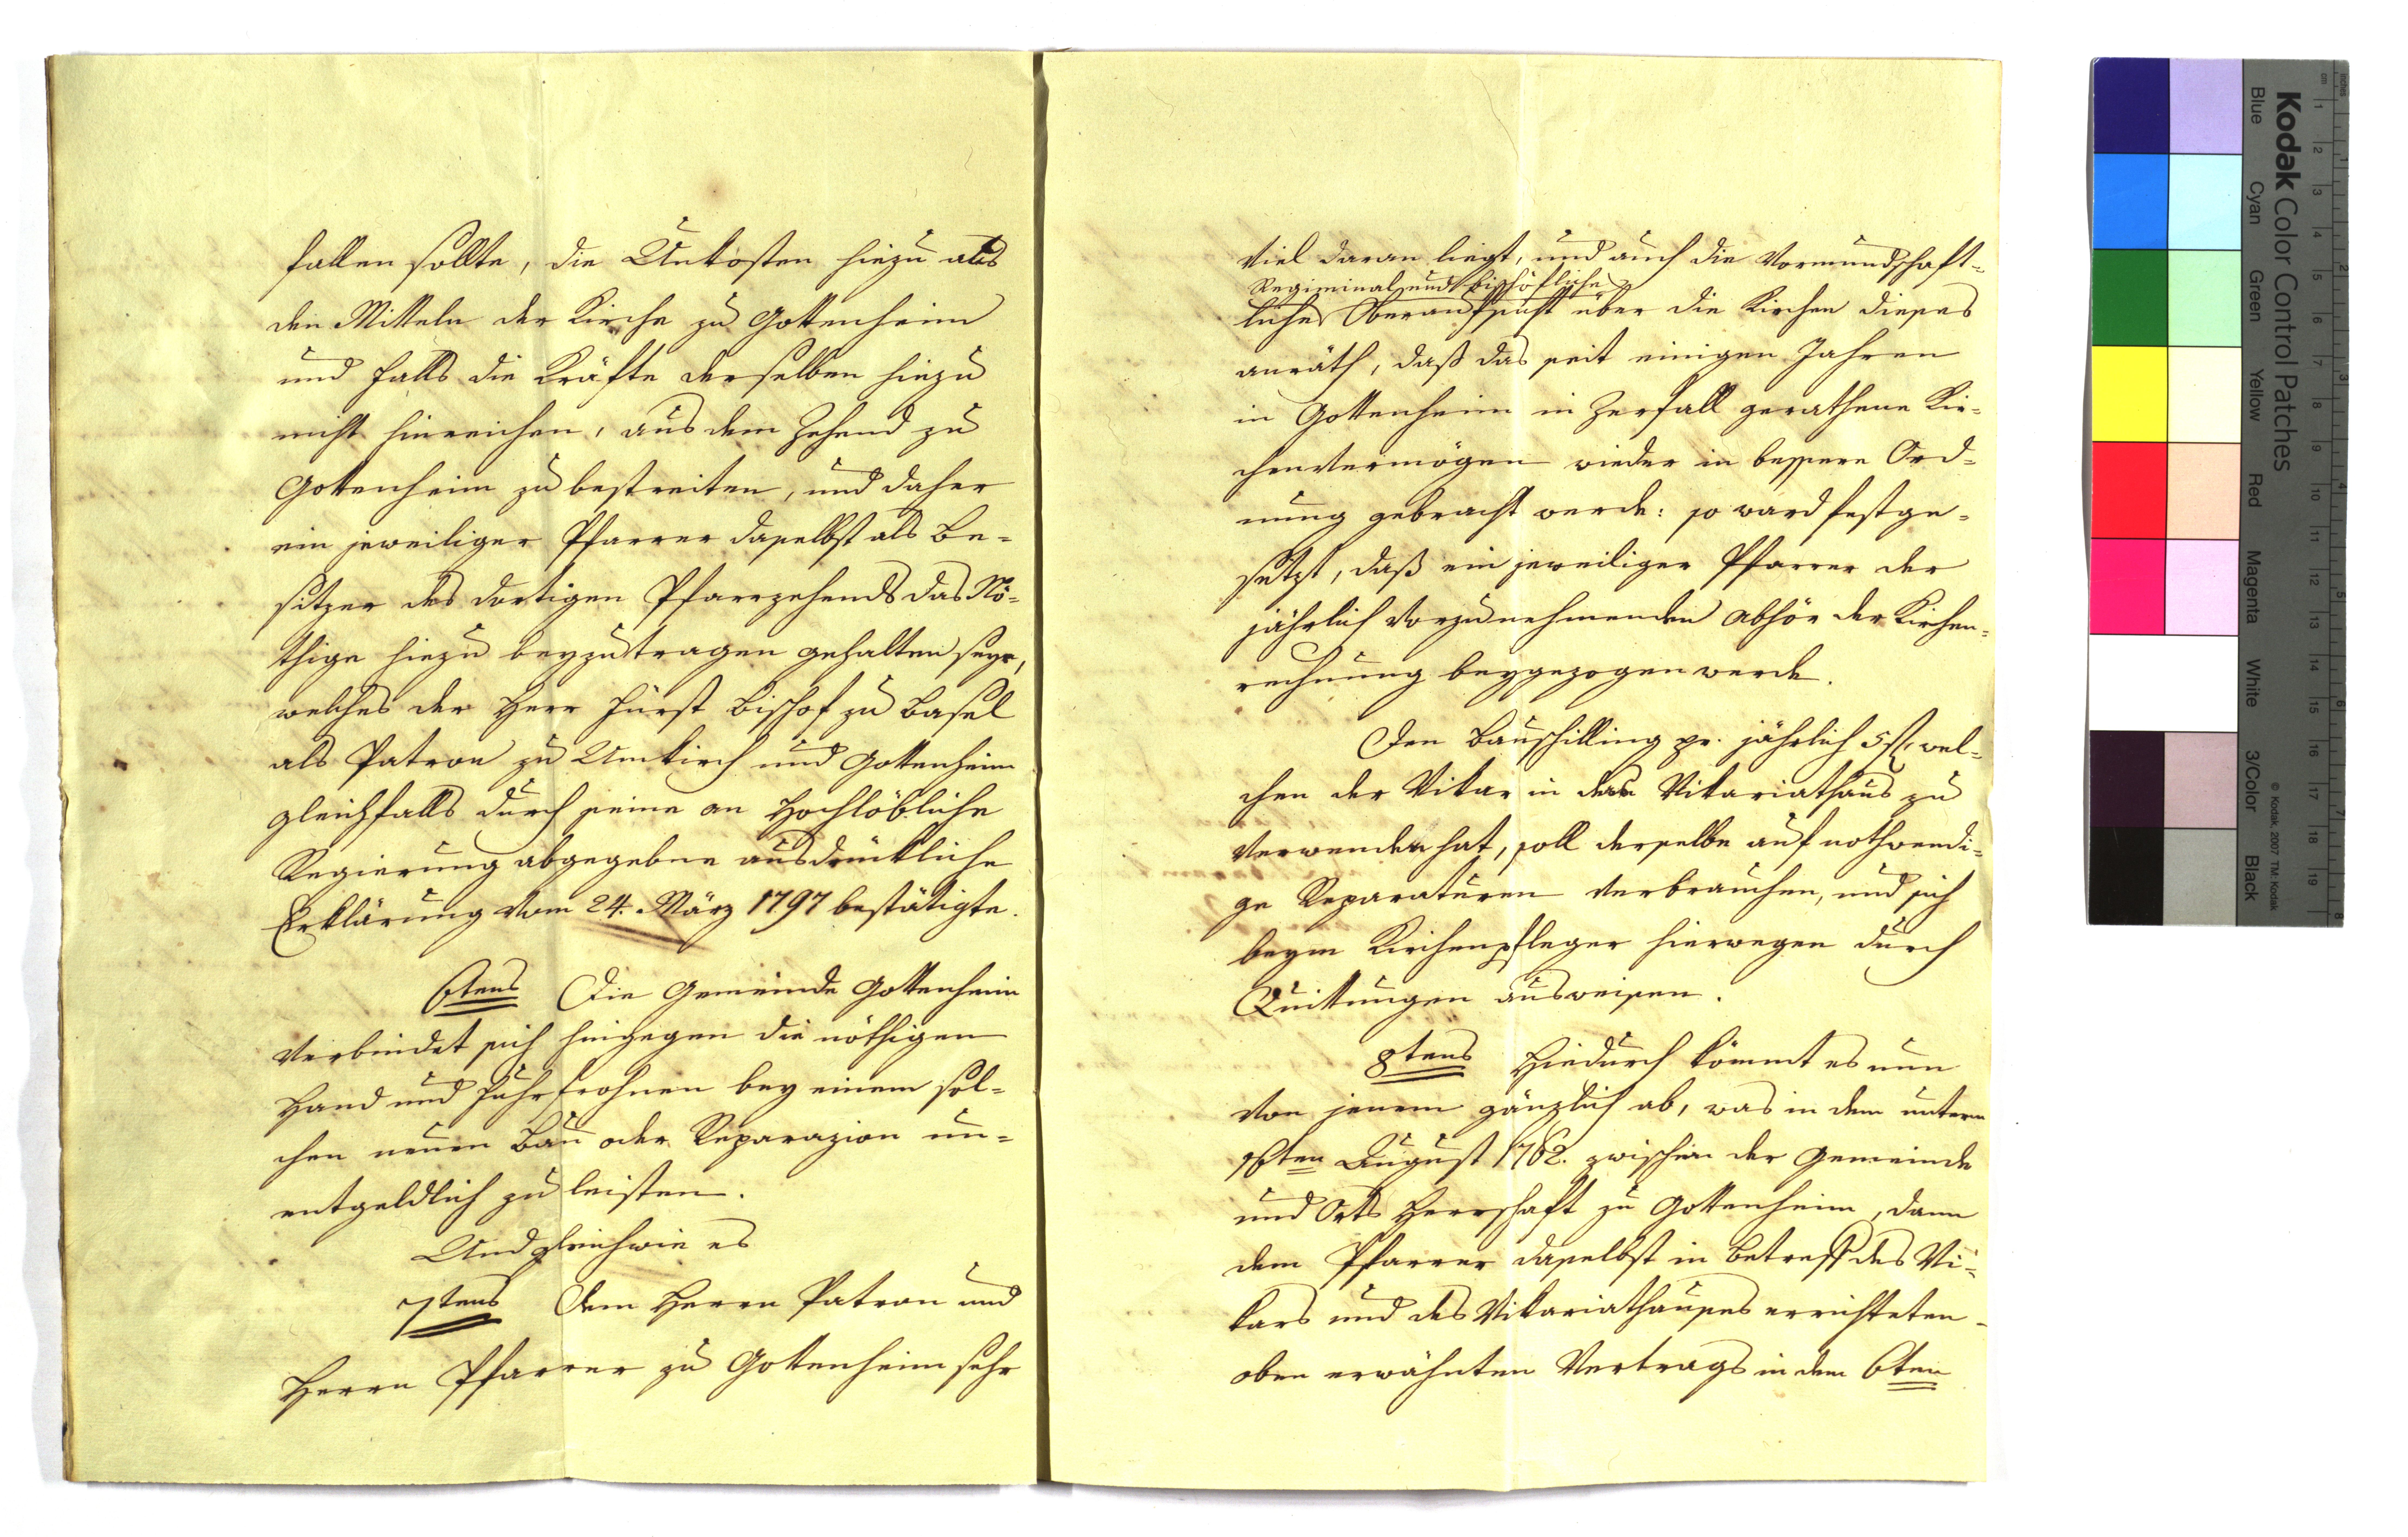 fallen sollte, die Unkosten hiezu aus
den Mitteln der Kirche zu Gottenheim
und falls die Kräfte derselben hiezu
nicht hinreichen, aus dem Zehend zu
Gottenheim zu bestreiten, und daher
ein jeweiliger Pfarrer daselbst als Be-
sitzer des dortigen Pfarrzehends das Nö-
thige hiezu beyzutragen gehalten seye,
welches der Herr Fürst Bischof zu Basel
als Patron zu Umkirch und Gottenheim
gleichfalls durch seine an Hochlöbliche
Regierung abgegebne ausdrückliche
Erklärung vom 24. März 1797 bestätigte.
6tens Die Gemeinde Gottenheim
verbindet sich hingegen die nöthigen
Hand und Fuhrfrohnen bey einem sol-
chen neuen Bau oder Reparazion un-
entgeldlich zu leisten.
Und gleichwie es
7tens dem Herrn Patron und
Herrn Pfarrer zu Gottenheim sehr
viel daran liegt, und auch die Vormundschaft-
Regiminal und bischöfliche
liche Oberaufsicht über die Kirchen dieses
anräth, daß das seit einigen Jahren
in Gottenheim in Zerfall gerathene Kir-
chenvermögen wieder in bessere Ord-
nung gebracht werde: so ward festge-
setzt, daß ein jeweiliger Pfarrer der
jährlich vorzunehmenden Abhör der Kirchen-
rechnung beygezogen werde.
Den Bauschilling pr. jährlich 5 fl, wel-
chen der Vikar in das Vikariathaus zu
verwenden hat, soll derselbe auf nothwendi-
ge Reparaturen verbrauchen, und sich
beym Kirchenpfleger hierwegen durch
Quittungen ausweisen.
8tens Hiedurch kömmt es nun
von jenem gänzlich ab, was in dem unterm
16ten August 1762. zwischen der Gemeinde
und Orts Herrschaft zu Gottenheim, dann
dem Pfarrer daselbst in Betreff des Vi-
kars und des Vikariathauses errichteten
oben erwähnten Vertrags in dem 6ten
Kodak Color Control Patches
Blue Cyan Green Yellow Red Magenta White 3/Color Black
© Kodak, 2007 TM: Kodak